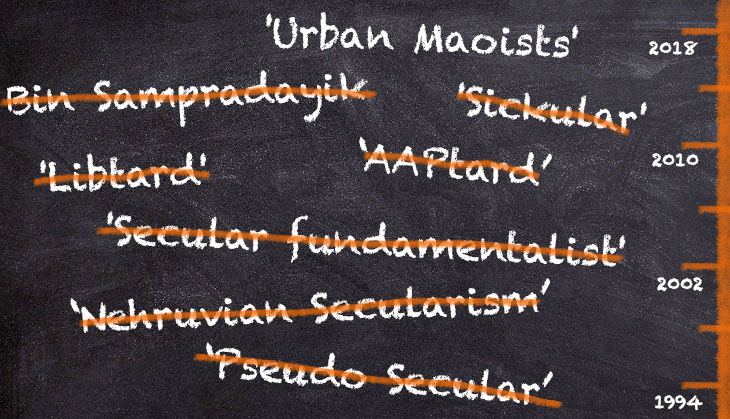 'Urban Maoists'
2018
Bin Sampradayik
'Sickular'
'Libtard'
'AAPtard'
2010
'Secular fundamentalist'
2002
'Nehruvian Secularism'
'Pseudo Secular'
1994